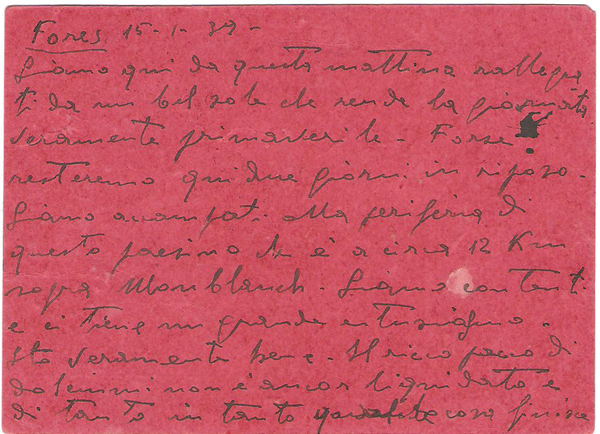 Fores 15-1-39-
Siamo qui da questa mattina rallegra
ti da un bel sole che rende la giornata
veramente primaverile - Forse
resteremo qui due giorni in riposo.
Siamo accampati alla periferia di
questo paesino che è a circa 12 Km
sopra Monblanch. Siamo contenti
e ci tiene un grande entusiasmo.
Sto veramente bene. Il ricco pacco di
dolciumi non è ancor liquidato e
di tanto in tanto qualche cosa finisce